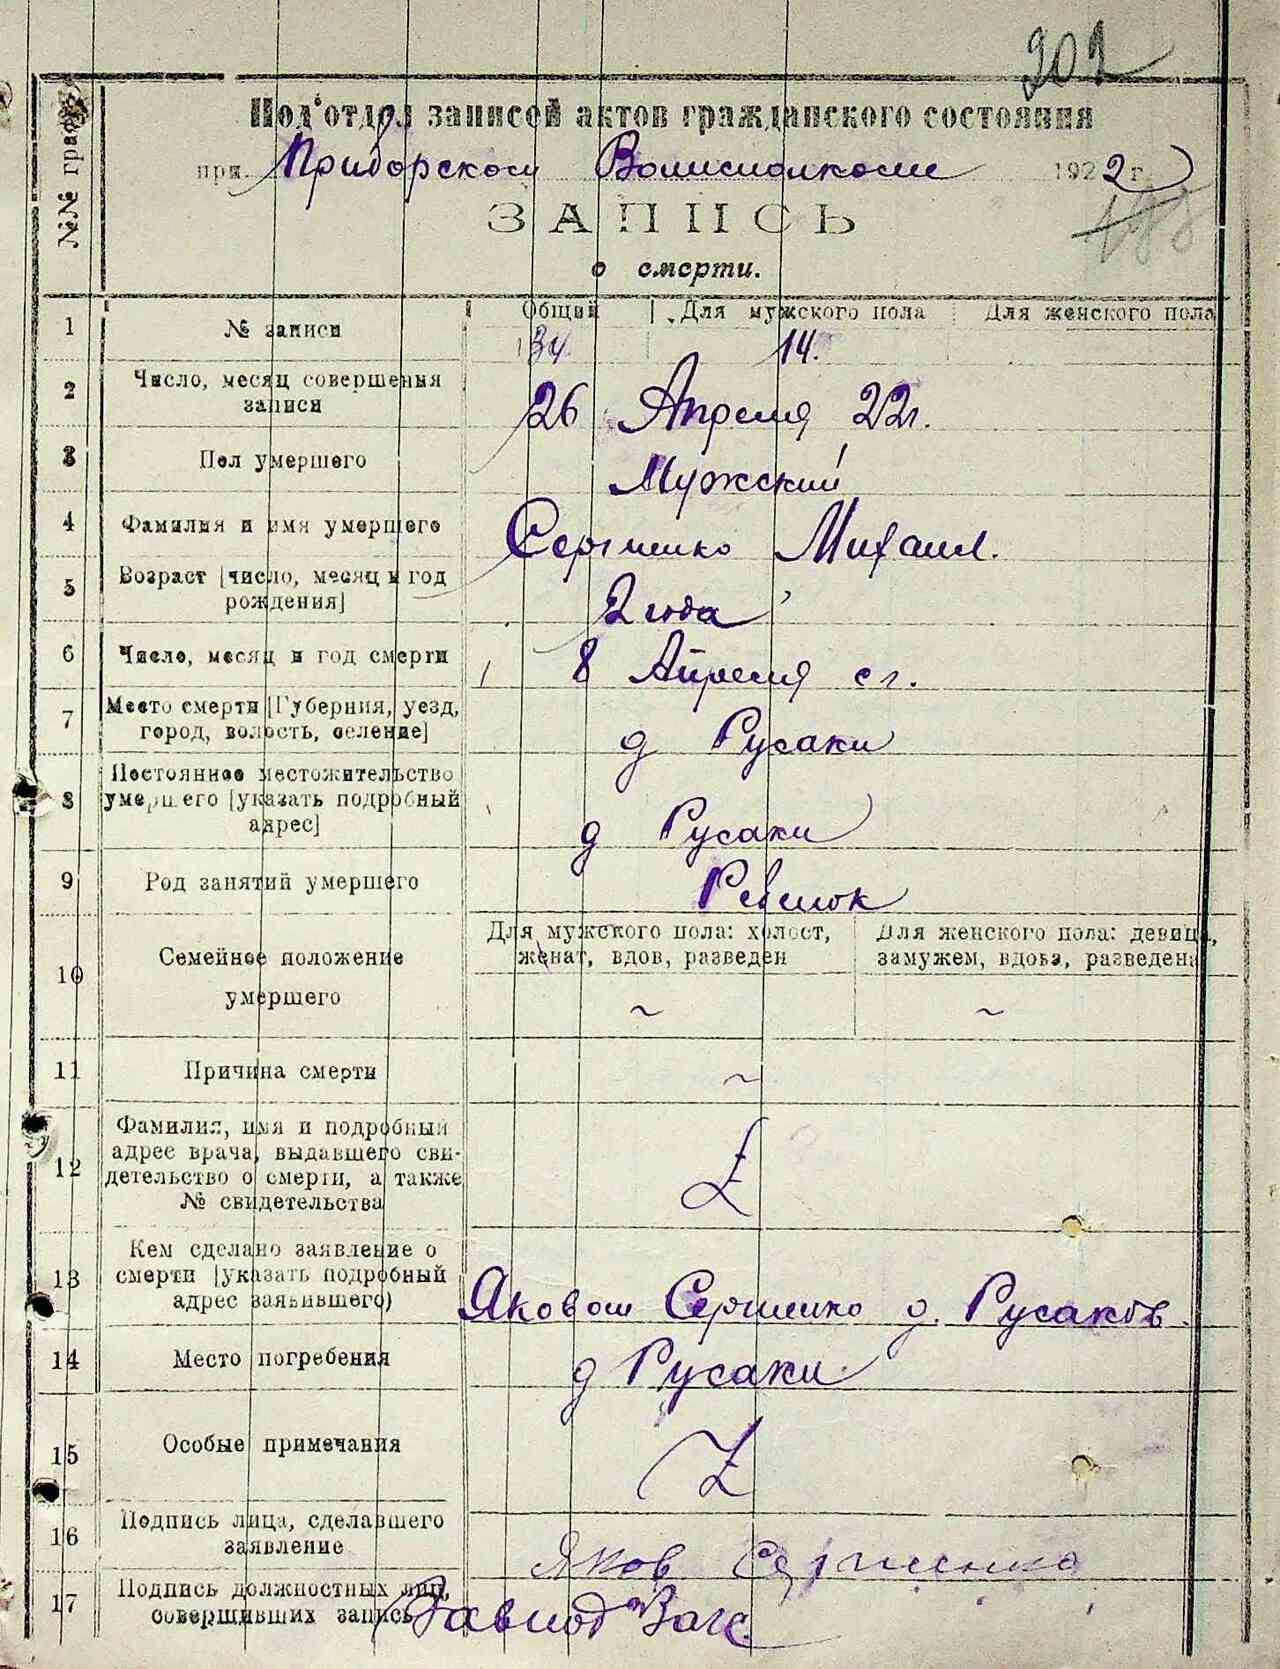 202
Под'отдел записей актов гражданского состояния
при Приборском Волисполкоме 1922 г.
ЗАПИСЬ
о смерти.
№№ граф
1 № записи Общий Для мужского пола Для женского пола
34 14.
2 Число, месяц совершения
записи
26 Апреля 22г.
3 Пол умершего Мужский
4 Фамилия и имя умершего Сергиенко Михаил.
5 Возраст [число, месяц и год
рождения] 2 года
6 Число, месяц и год смерти 8 Апреля с г.
7 Место смерти [Губерния, уезд,
город, волость, селение] д Русаки
8 Постоянное местожительство
умершего [указать подробный
адрес] д Русаки
9 Род занятий умершего Ребенок
10 Семейное положение
умершего
Для мужского пола: холост,
женат, вдов, разведен
Для женского пола: девица,
замужем, вдова, разведена
~ ~
11 Причина смерти ~
12 Фамилия, имя и подробный
адрес врача, выдавшего сви-
детельство о смерти, а также
№ свидетельства
13 Кем сделано заявление о
смерти [указать подробный
адрес заявившего)
Яковом Сергиенко д. Русаков.
14 Место погребения д Русаки
15 Особые примечания
16 Подпись лица, сделавшего
заявление Яков Сергиенко
17 Подпись должностных лиц,
совершивших запись Завпод Загс